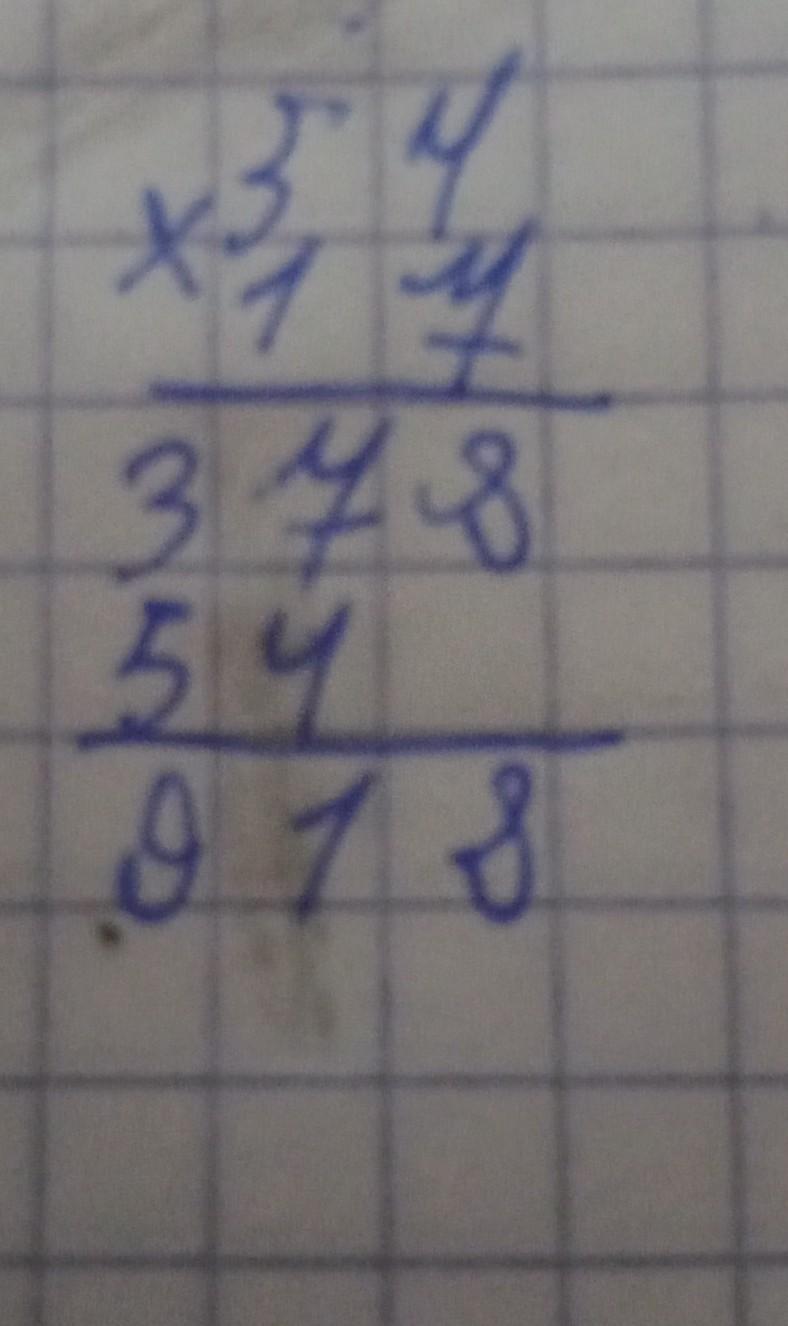 × 54
17
378
54
918